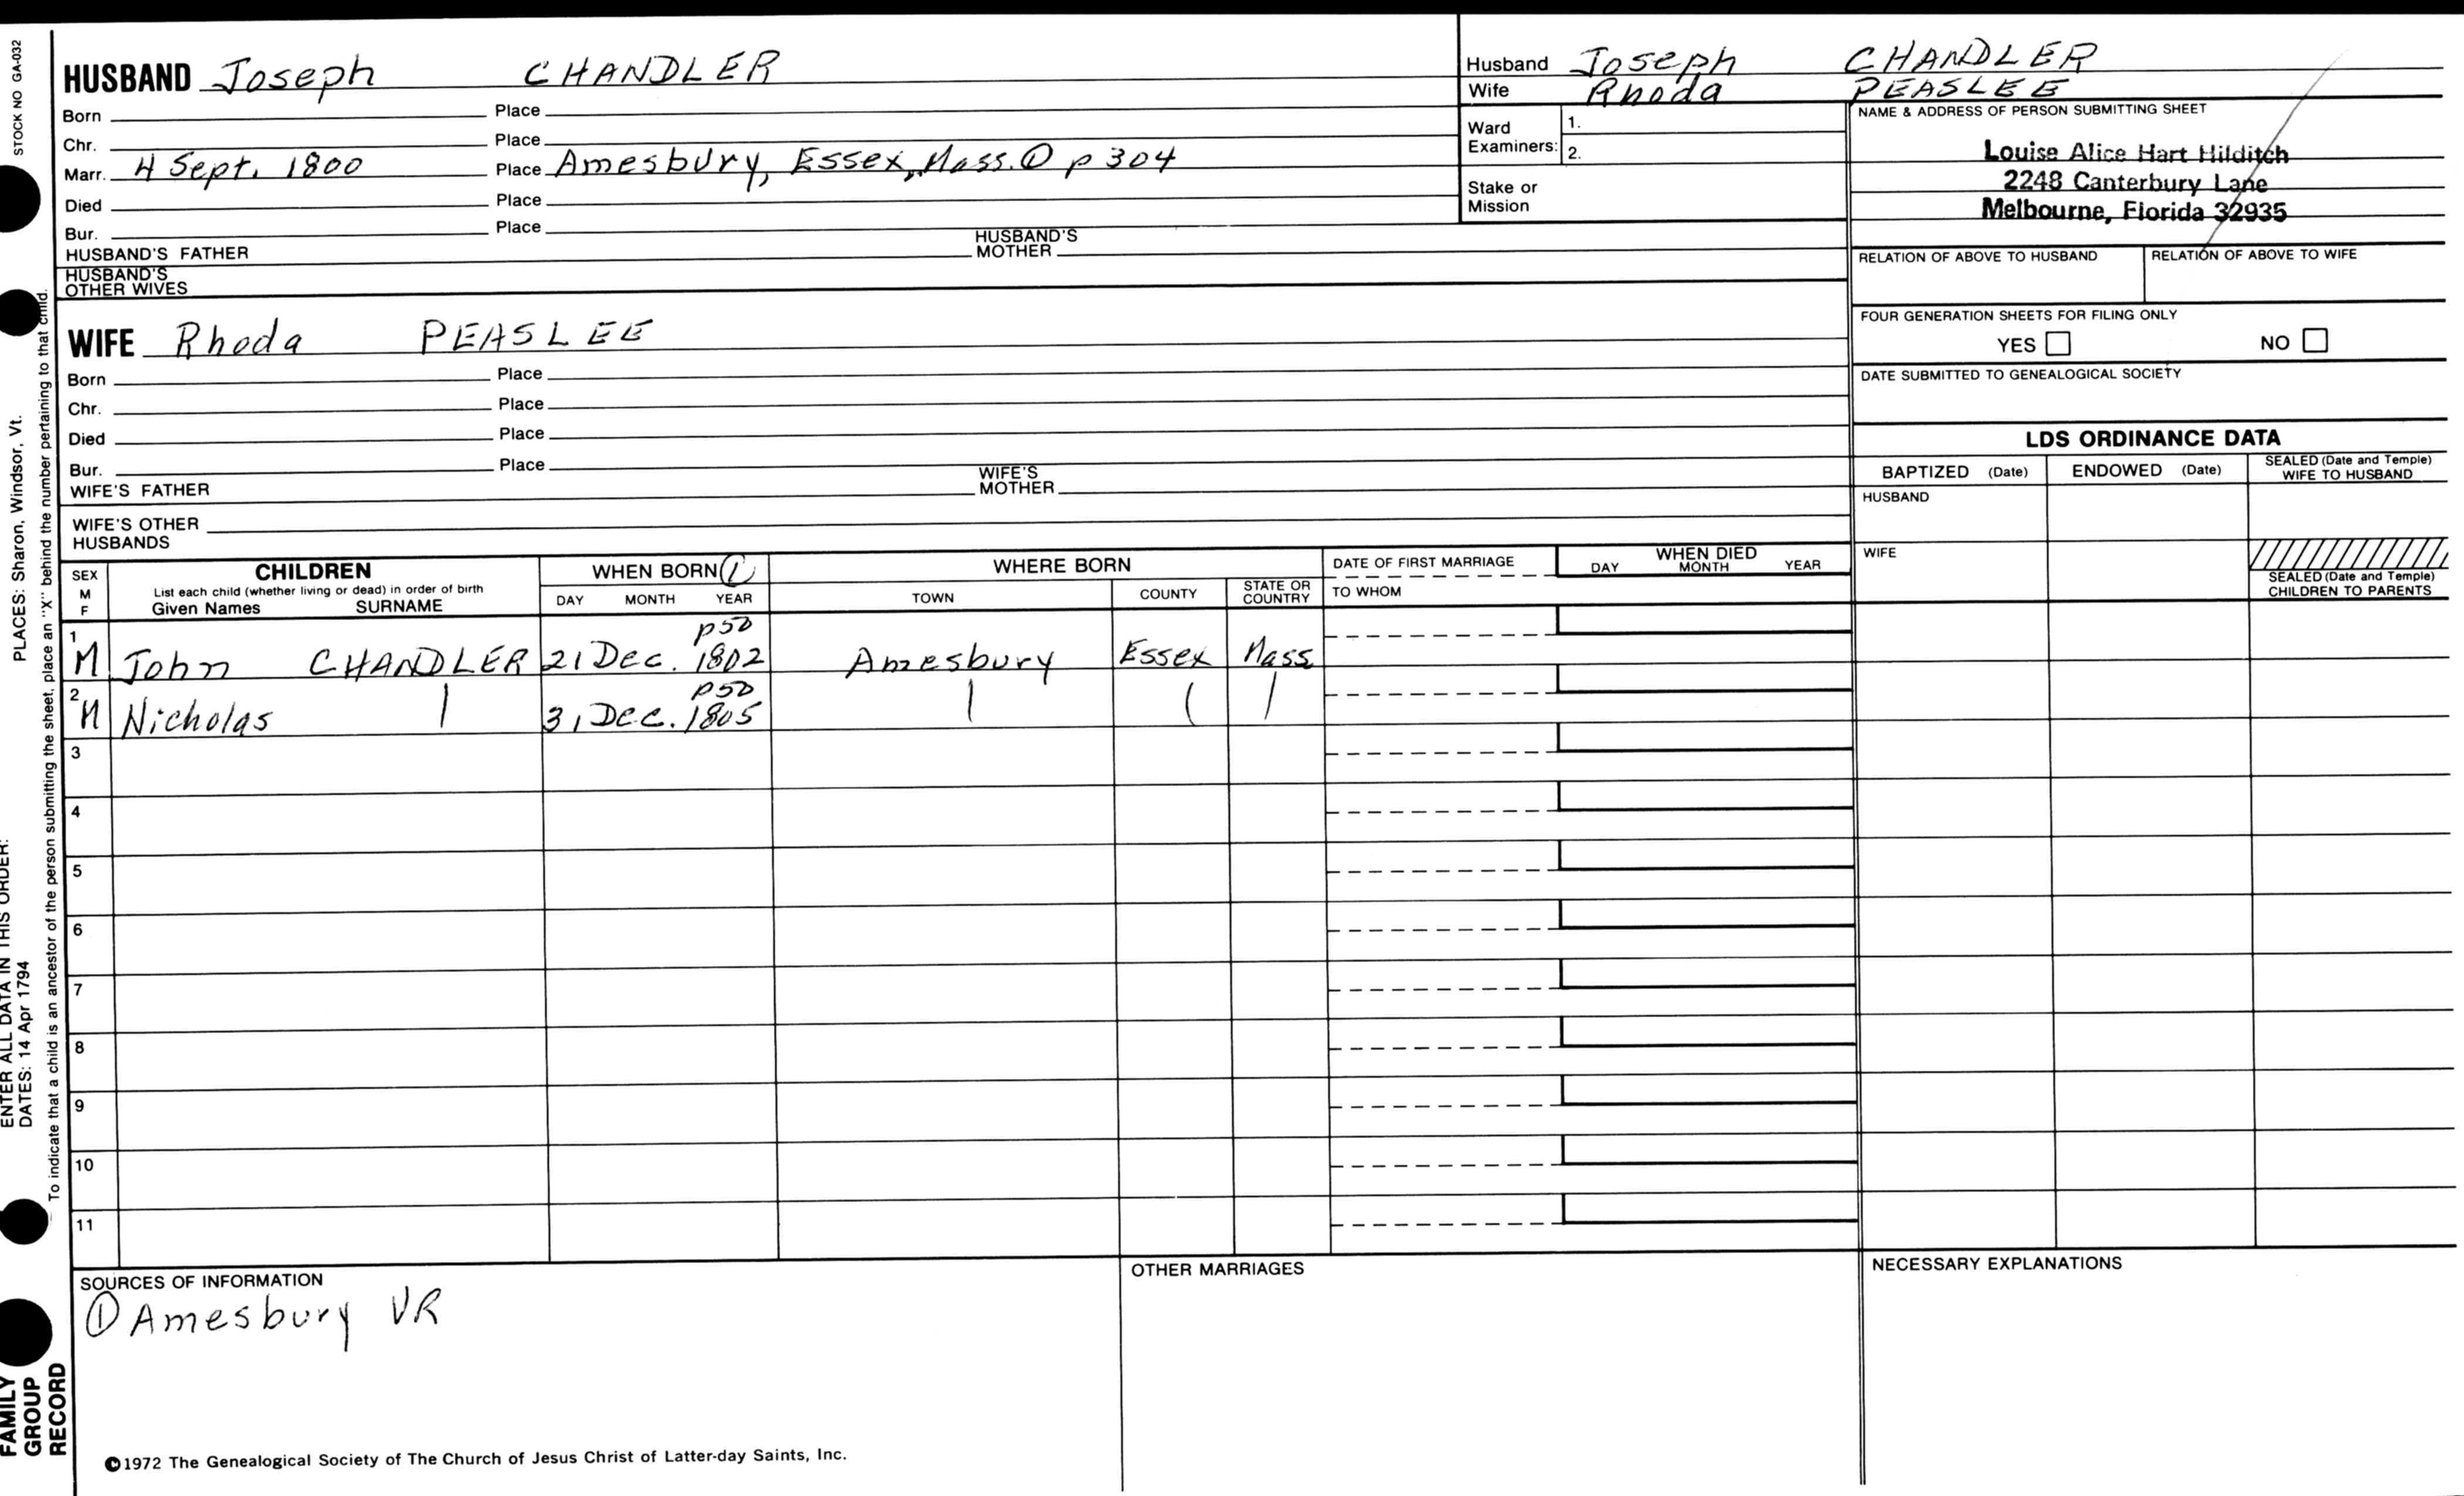 STOCK NO GA-032
HUSBAND Joseph CHANDLER
Born Place
Chr. Place
Marr. 4 Sept. 1800 Place Amesbury, Essex, Mass. ① p 304
Died Place
Bur. Place
HUSBAND'S FATHER HUSBAND'S MOTHER
HUSBAND'S OTHER WIVES
Husband Joseph CHANDLER
Wife Rhoda PEASLEE
Ward Examiners: 1.
2.
Stake or Mission
NAME & ADDRESS OF PERSON SUBMITTING SHEET
Louise Alice Hart Hilditch
2248 Canterbury Lane
Melbourne, Florida 32935
RELATION OF ABOVE TO HUSBAND RELATION OF ABOVE TO WIFE
FOUR GENERATION SHEETS FOR FILING ONLY
YES NO
DATE SUBMITTED TO GENEALOGICAL SOCIETY
WIFE Rhoda PEASLEE
Born Place
Chr. Place
Died Place
Bur. Place
WIFE'S FATHER WIFE'S MOTHER
WIFE'S OTHER HUSBANDS
LDS ORDINANCE DATA
BAPTIZED (Date) ENDOWED (Date) SEALED (Date and Temple) WIFE TO HUSBAND
HUSBAND
WIFE
SEALED (Date and Temple) CHILDREN TO PARENTS
SEX M F
CHILDREN
List each child (whether living or dead) in order of birth
Given Names SURNAME
WHEN BORN ①
DAY MONTH YEAR
WHERE BORN
TOWN COUNTY STATE OR COUNTRY
DATE OF FIRST MARRIAGE
TO WHOM
WHEN DIED
DAY MONTH YEAR
p50
1 M John CHANDLER 21 Dec. 1802 Amesbury Essex Mass
p50
2 M Nicholas | 31 Dec. 1805 | | |
3
4
5
6
7
8
9
10
11
SOURCES OF INFORMATION
① Amesbury VR
OTHER MARRIAGES
NECESSARY EXPLANATIONS
©1972 The Genealogical Society of The Church of Jesus Christ of Latter-day Saints, Inc.
FAMILY GROUP RECORD
ENTER ALL DATA IN THIS ORDER:
DATES: 14 Apr 1794 PLACES: Sharon, Windsor, Vt.
To indicate that a child is an ancestor of the person submitting the sheet, place an "X" behind the number pertaining to that child.